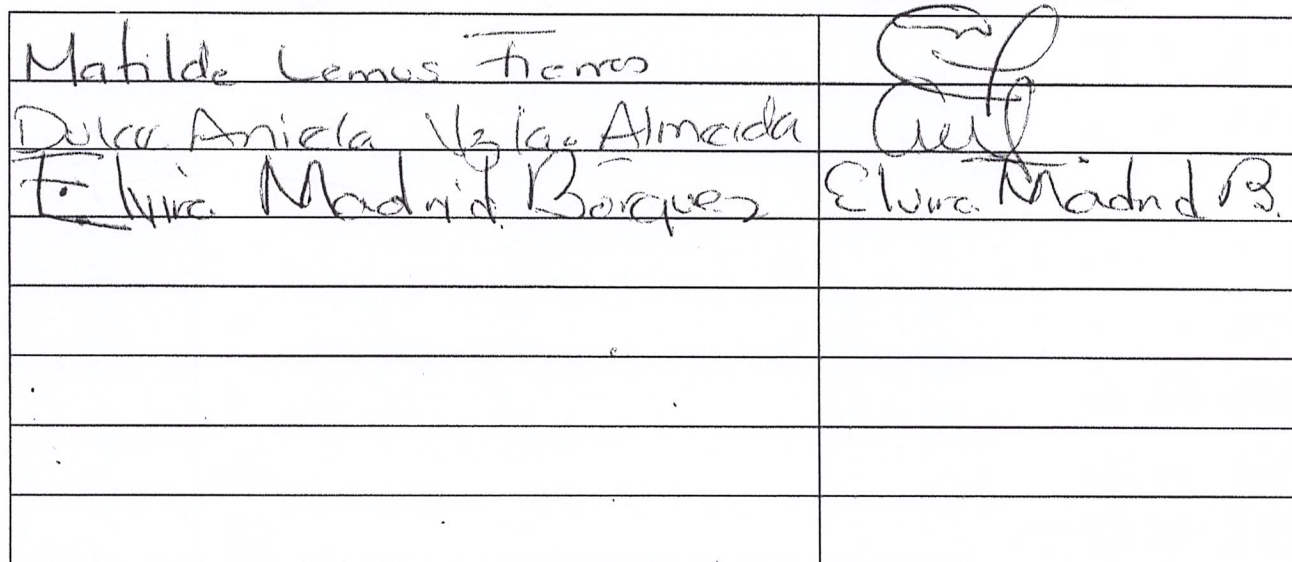 Matilde Lemus Fierros
Dulce Aniela Vzla. Almeida
Elvira Madrid Bórquez Elvira Madrid B.